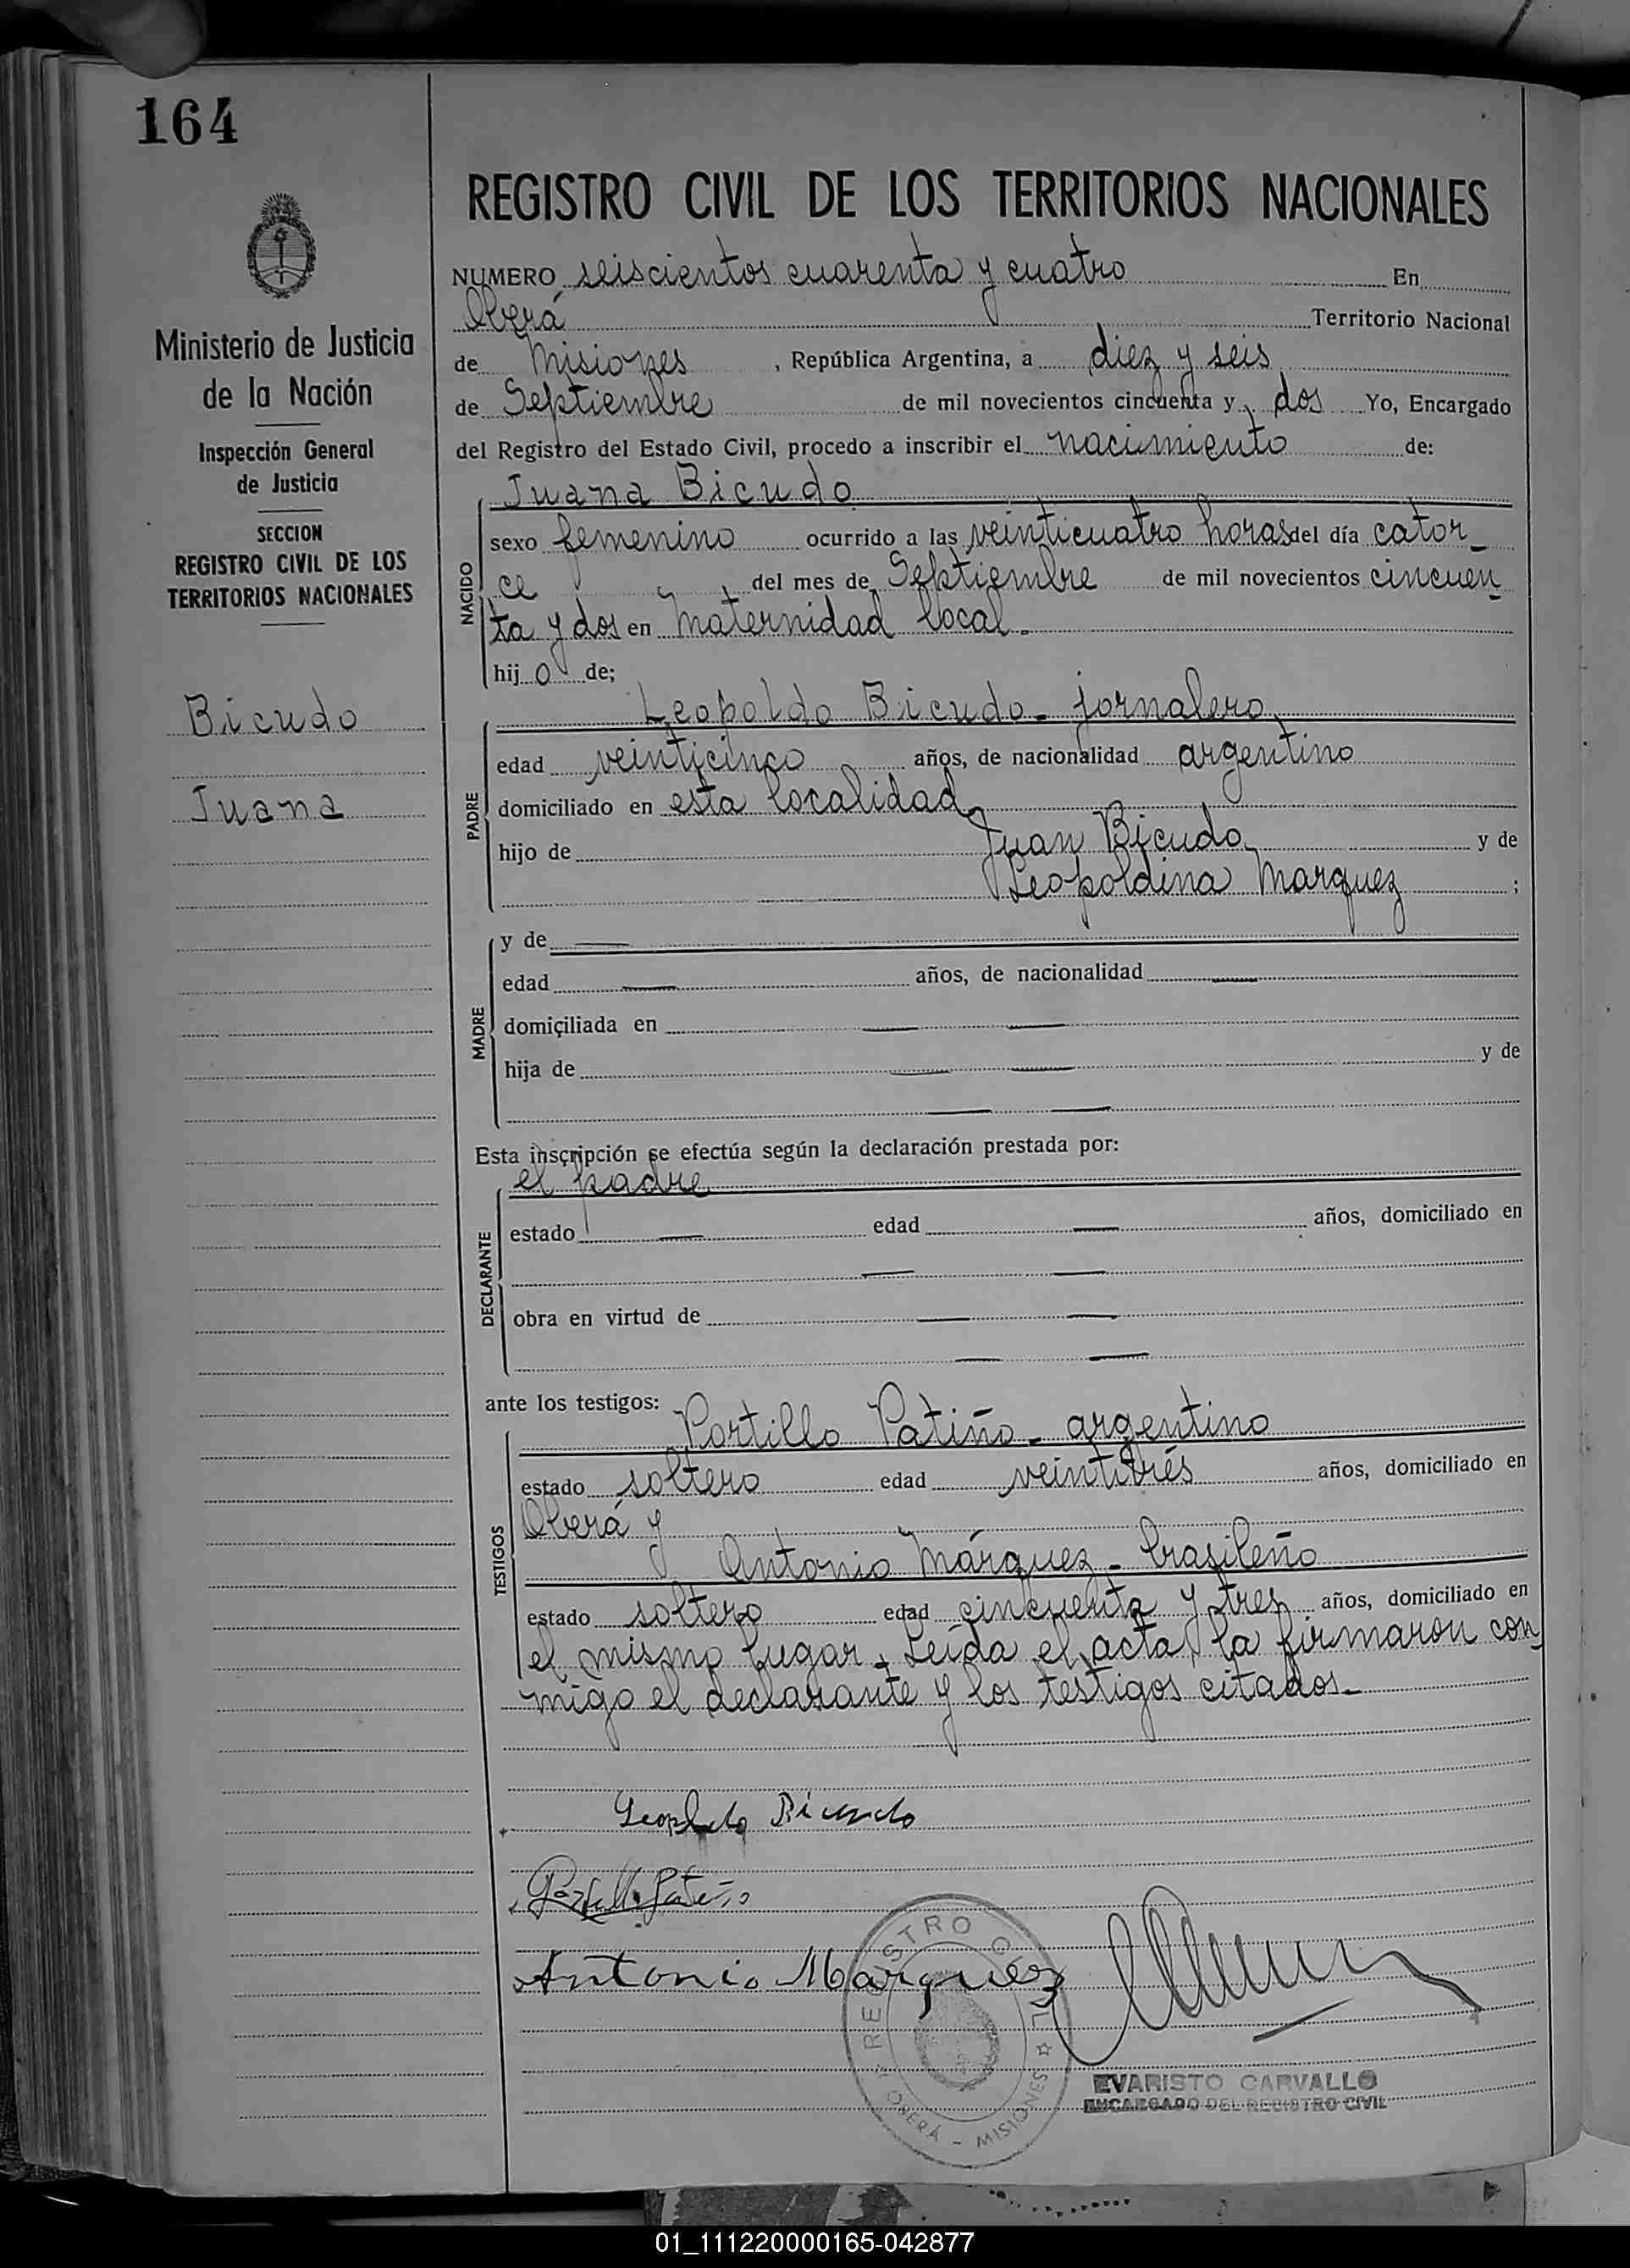 164
REGISTRO CIVIL DE LOS TERRITORIOS NACIONALES
Ministerio de Justicia
de la Nación
Inspección General
de Justicia
SECCION
REGISTRO CIVIL DE LOS
TERRITORIOS NACIONALES
Bicudo
Juana
NUMERO seiscientos cuarenta y cuatro En
Oberá Territorio Nacional
de Misiones, República Argentina, a diez y seis
de Septiembre de mil novecientos cincuenta y dos Yo, Encargado
del Registro del Estado Civil, procedo a inscribir el nacimiento de:
Juana Bicudo
NACIDO
sexo femenino ocurrido a las veinticuatro horas del día cator_
ce del mes de Septiembre de mil novecientos cincuen_
ta y dos en Maternidad local.
hij o de;
Leopoldo Bicudo - jornalero
PADRE
edad veinticinco años, de nacionalidad argentino
domiciliado en esta localidad
hijo de Juan Bicudo y de
Leopoldina Marquez ;
MADRE
y de —
edad — años, de nacionalidad —
domiciliada en — —
hija de — — y de
— —
Esta inscripción se efectúa según la declaración prestada por:
el padre
DECLARANTE
estado — edad — años, domiciliado en
— —
obra en virtud de — —
— —
ante los testigos:
Portillo Patiño - argentino
TESTIGOS
estado soltero edad veintitrés años, domiciliado en
Oberá y
Antonio Márquez - brasileño
estado soltero edad cincuenta y tres años, domiciliado en
el mismo lugar. Leída el acta, la firmaron con_
migo el declarante y los testigos citados.-
Leopoldo Bicudo
Portillo Patiño
Antonio Marquez
REGISTRO CIVIL
OBERÁ - MISIONES
EVARISTO CARVALLO
ENCARGADO DEL REGISTRO CIVIL
01_111220000165-042877